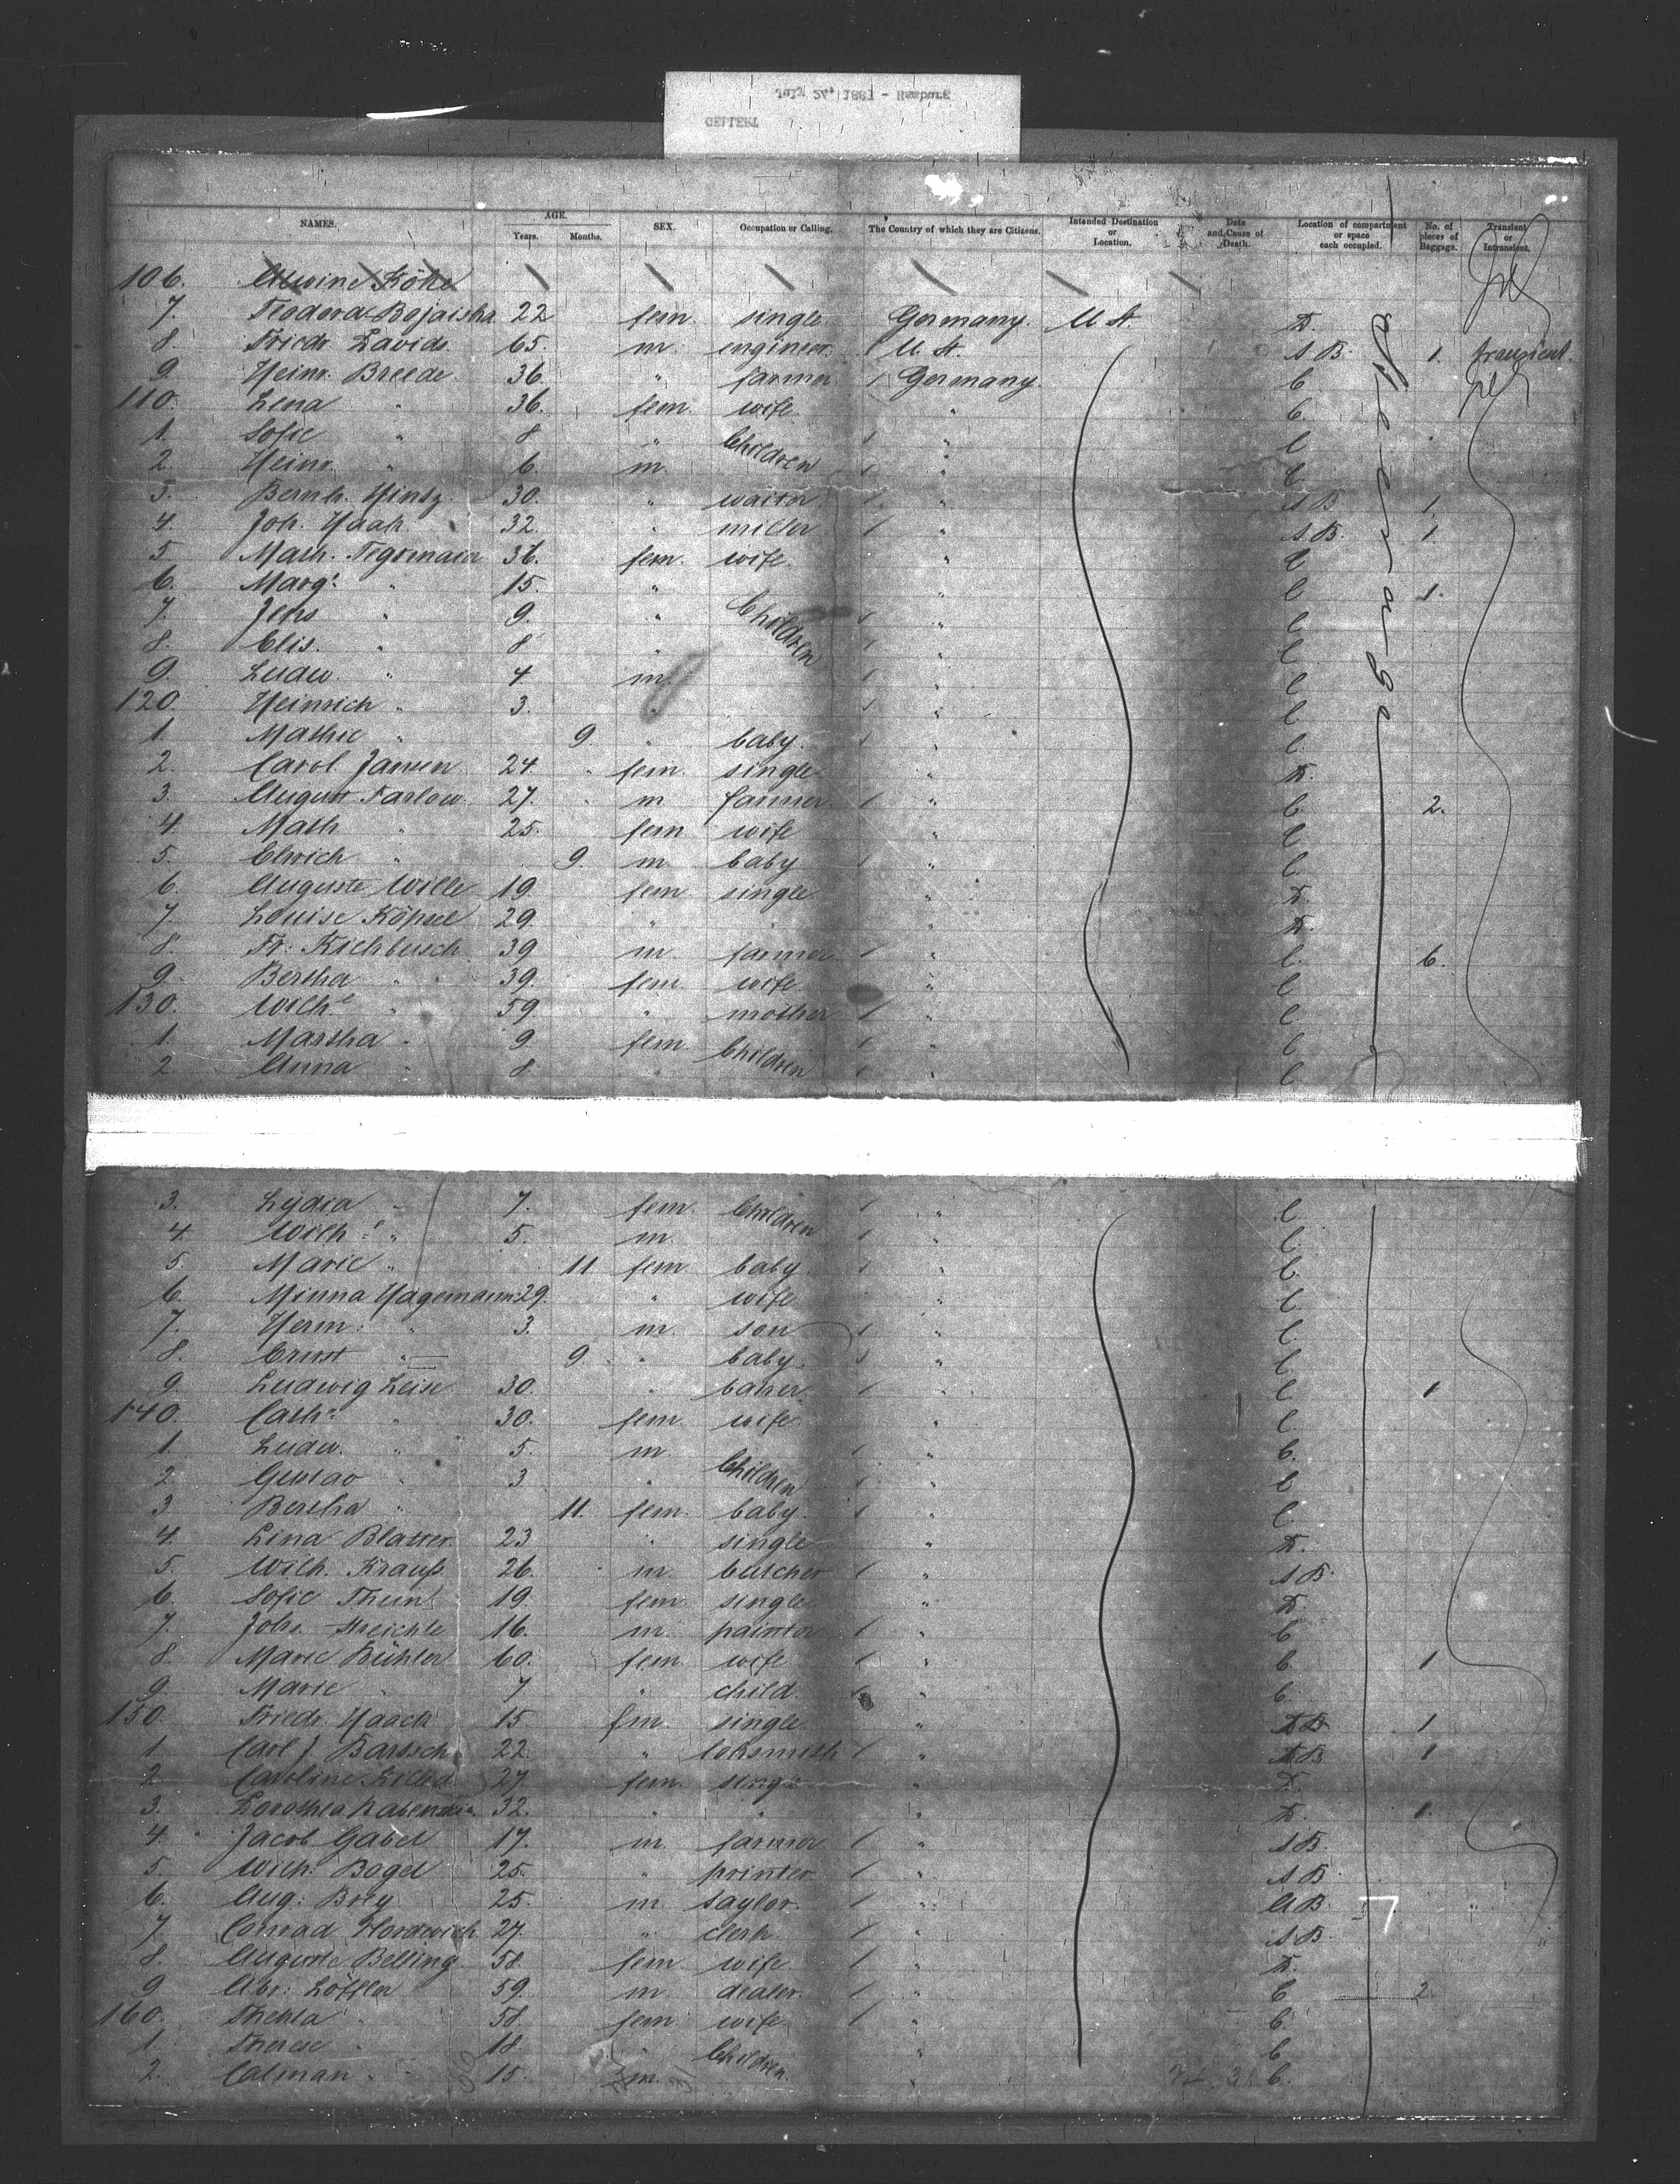 July 24, 1881 - Hamburg
GELLERT
NAMES. AGE. Years. Months. SEX. Occupation or Calling. The Country of which they are Citizens. Intended Destination or Location. Date and Cause of Death. Location of compartment or space each occupied. No. of pieces of Baggage. Transient or Intransient.
106. Alwine Köhe
7. Teodora 22 fem. single. Germany. U St. D.
8. Friedr. Davids. 65. m. engineer. U. St. S B. 1. transient.
9. Heinr. Breede. 36. " farmer / Germany. C
110. Lena " 36. fem. wife. " C.
1. Sofie " 8 " Children / " C
2. Heinr. " 6. m. / " C.
3. Bernh. Hintz. 30. " waiter. / " S B 1.
4. Joh. Haak. 32. " miller / " S. B. 1.
5. Math. Tegemaier 36. fem. wife. " C
6. Marg. " 15. " " C 1.
7. Jens " 9. " Children / " C
8. Elis. " 8 " / " C
9. Ludw. " 4 m. / " C
120. Heinrich " 3. " / " C
1. Mathie " 9. " baby. / " C.
2. Carol Jansen 24. fem. single " D.
3. August Farlow. 27. m farmer. / " C. 2.
4. Math " 25. fem wife " C
5. " 9. m. baby / " C.
6. Auguste Wille 19. fem single " D.
7. Louise Köpsel 29. " " " D.
8. Fr. Kichbusch. 39 m. farmer / " C. 6.
9. Bertha " 39. fem. wife " C
130. Wilh " 59. " mother / " C
1. Martha " 9. fem. Children / " C
2. Anna " 8. / " C.
Steerage
3. Lydia " 7. fem. Children / " C.
4. Wilh. " 5. m. / " C.
5. Marie " 11 fem. baby. / " C.
6. Minna Hagemann. 29. " wife " C.
7. Herm. " 3. m. son / " C.
8. Ernst " 9. " baby. / " C
9. Ludwig Leise 30. " baker. / " C 1
140. Cath. " 30. fem. wife " C.
1. Ludw. " 5. m. / " C.
2. Gustav " 3 " Children / " C
3. Bertha " 11. fem. baby. / " C
4. Lina Blatter. 23 " single " D.
5. Wilh. Krauß. 26. m. butcher / " S B
6. Sofie Thein 19. fem. single " D.
7. Joh. Streichle 16. m. painter / " C
8. Marie Bühler 60. fem. wife / " C. 1
9. Marie " 7 " child. " C.
150. Friedr. Haack 15. m. single " S B 1
1. Carl J. Bartsch 22. " loksmith / " S B 1
2. Caroline 27. fem. single " D.
3. Dorothea 32. " " " D. 1.
4. Jacob Gabel 17. m. farmer / " S B.
5. Wilh. Bogel 25. " printer. / " S B
6. Aug. Brey 25. m. taylor. / " B.
7. Conrad Hordwich 27. " clerk. / " S B.
8. Auguste Belling. 58. fem. wife / " D.
9. Abr. Löffler 59. m. dealer. / " C 2.
160. Thekla " 58. fem. wife / " C.
1. Therese " 18. " Children " C
2. Calman " 15. m. " C.